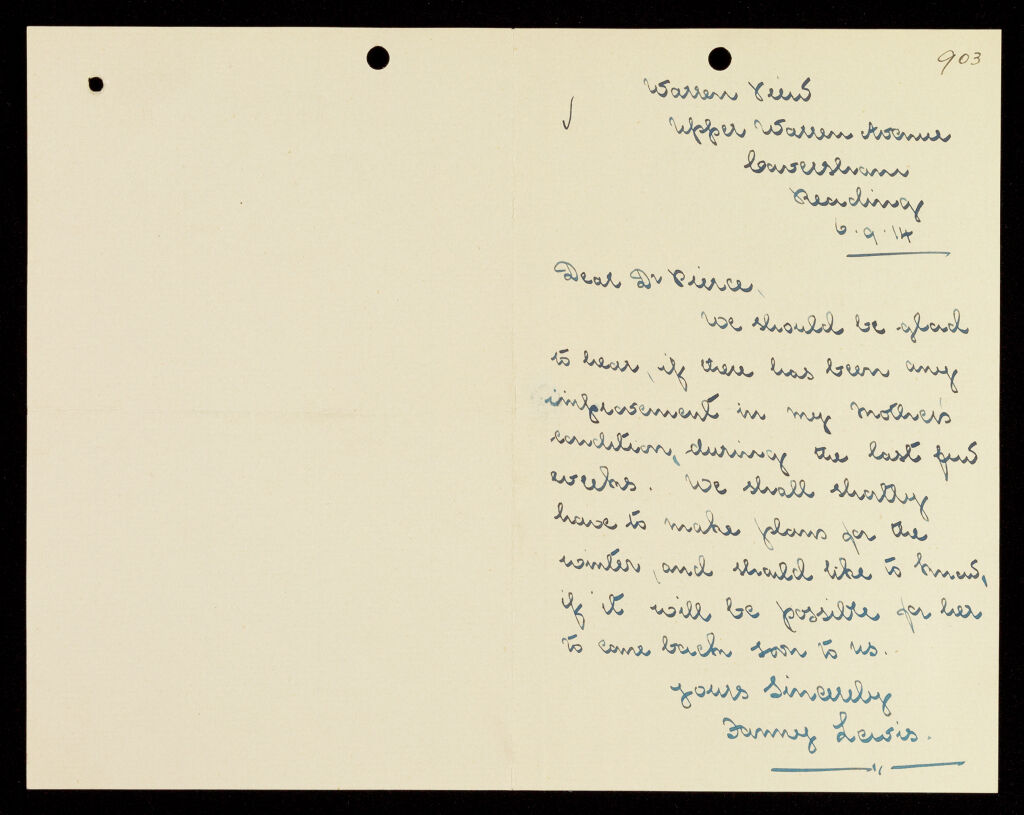 903
Warren View
Upper Warren Avenue
Caversham
Reading
6.9.14
Dear Dr Pierce,
We should be glad
to hear, if there has been any
improvement in my mother's
condition, during the last few
weeks. We shall shortly
have to make plans for the
winter, and should like to know,
if it will be possible for her
to come back soon to us.
yours sincerely
Fanny Lewis.